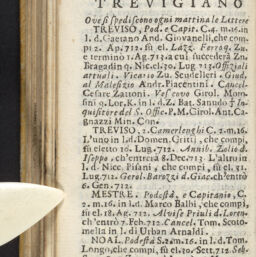 TREVIGIANO
Ove si spediscono ogni mattina le Lettere
TREVISO, Pod. e Capit. C. 4. m. 16. in
l. d. Gaetano And. Giovanelli, che com-
pì 2. Ap. 712. fù el. Lazz. Ferro q. Zu.
e termino 11. Ag. 713. a cui succederà Zn.
Bragadin q. Nic. el. 30. Lug 213. Officiali
attuali. Vicario Zu. Scudelleri. Giud.
al Malefizio Andr. Piacentini. Cancel.
Cesare Zattoni. Vescovo Girol. Moro-
sini q. Lor. K. in l. d. Z. Bat. Sanudo † In-
quisitore del S. Offic. P. M. Girol. Ant. Ca-
gnazzi Min. Con.
TREVISO, 2. Camerlenghi C. 2. m. 16.
L'uno in l. d. Domen. Gritti, che compì,
fù eletto 16. Lug. 712. Annib. Zolio d.
Iseppo, ch'entrerà 8. Dec. 713. L'altro in
l. d. Nic. Pisani, che compì, fù el. 31.
Lug. 711. Gerol. Barozzi d. Giac. ch'entrò
6. Gen. 712.
MESTRE. Podestà, e Capitanio, C.
2. m. 16. in l. d. Marco Balbi, che compì,
fù el. 18. Ag. 712. Alvise Priuli d. Loren.
ch'entrò 7. Feb. 712. Cancel. Tom. Scoto-
mella in l. di Urban Arnaldi.
NOAL. Podestà C. 2. m. 16. in l. d. Tom.
Longo, che compì, fù el. 30. Sett. 712. Seb.